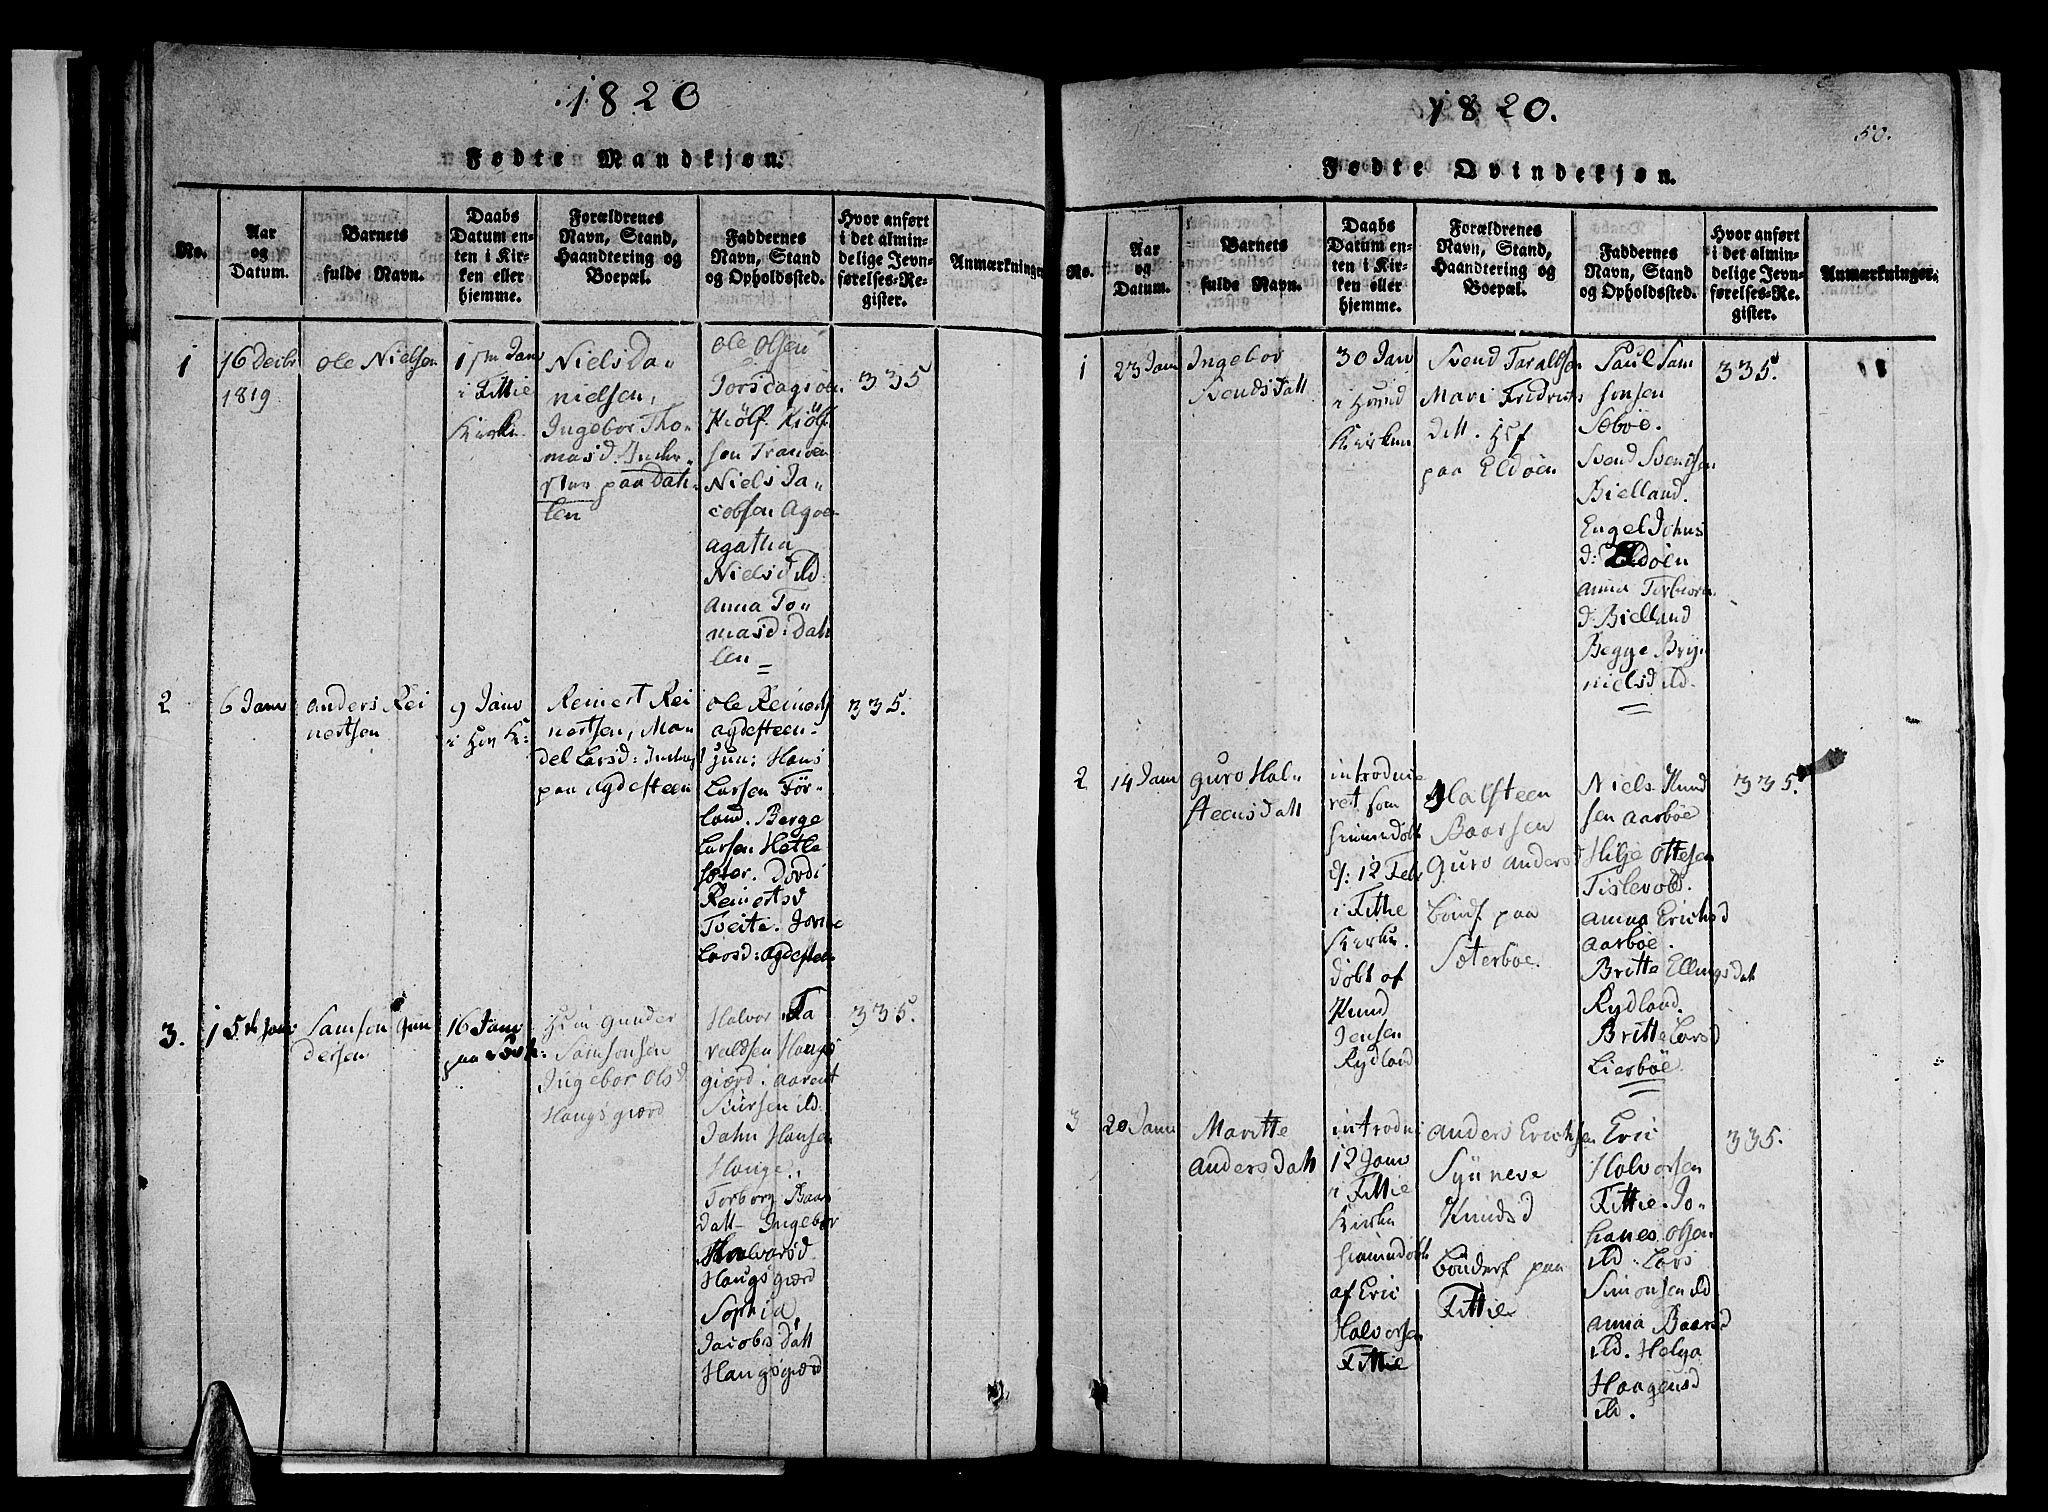 1820
Fødte Mandkjøn.
No.
Aar
og
Datum.
Barnets
fulde Navn.
Daabs
Datum en-
ten i Kir-
ken eller
hjemme.
Forældrenes
Navn, Stand,
Haandtering og
Boepæl.
Faddernes
Navn, Stand
og Opholdssted.
Hvor anført
i det almin-
delige Jevn-
førelses-Re-
gister.
Anmærkninger
1
16 Decbr
1819
Ole Nielsen
1ste Janv
i Fittie
Kirke
Niels Da-
nielsen,
Ingebor Tho-
masd:
paa Dah-
len
Ole Olsen
Kiölf Kiölf
sen
Niels Ja-
cobsen
agatha
Nielsd ibd.
Anna To-
masd: Dah
len
335
2
6 Janv
Anders Rei
nertsen
9 Janv
Reinert Rei
nertsen, Man
del Larsd:
paa Agdesteen
Ole Reinerts
agdesteen
jun: Hans
Larsen För-
land. Berge
Larsen Hetle
sæter. Dordi
Reinertsd
Tveite.
Larsd: agdesteen
335.
3.
15de Janv
Samson Gun
dersen
16 Janv
Gunder
Samsonsen
Ingebor Olsd
Haugsgiærd
Halvor Ta
raldsen Haugs
giærd. Aarent
Siursen ibd.
John Hansen
Hauge.
Torborg Baars
datt. Ingebor
Halvorsd
Haugsgiærd
Sophia
Jacobs Datt
Haugsgiærd
335.
1820.
50.
Fødte Qvindekjøn.
No.
Aar
og
Datum.
Barnets
fulde Navn.
Daabs
Datum en-
ten i Kir-
ken eller
hjemme.
Forældrenes
Navn, Stand,
Haandtering og
Boepæl.
Faddernes
Navn, Stand
og Opholdssted.
Hvor anført
i det almin-
delige Jevn-
førelses-Re-
gister.
Anmærkninger.
1
23 Janv
Ingebor
Svends Datt
30 Janv
Kirken
Svend Taraldsen
Mari Fridrics
Datt.
paa Eldøen
Paul Sam
sonsen
Sæbøe.
Svend Svendsen
Bielland.
Engel Johns
d: Eldøen
Anna Torbiørn
d: Bielland
Begge Bryn
nielsd ibd.
335.
2
14 Janv
Guro Hal-
steensdatt
introduce
ret som
hiemmedøbt
d: 12 Febr
i Fittie
Kirke.
døbt af
Knud
Jensen
Rydland
Halsteen
Baarsen
Guro Anders d
paa
Sæterbøe.
Niels Knud
sen Aarbøe
Hilje Ottesen
Tislevold.
Anna Erichsd
Aarbøe.
Britte Ellingsdatt
Rydland.
Britte Larsd
Lierbøe.
335.
3
20 Janv
Maritte
Andersdatt
introdu
12 Janv
i Fittie
Kirke
hiemmedøbt
af Eric
Halvorsen
Fittie
Anders Erichsen
Syneve
Knudsd
paa
Fittie
Eric
Halvorsen
Fittie. Jo-
hanes Olsen
ibd. Lars
Simonsen ibd
Anna Baarsd
ibd. Helga
Haagensd
ibd.
335.